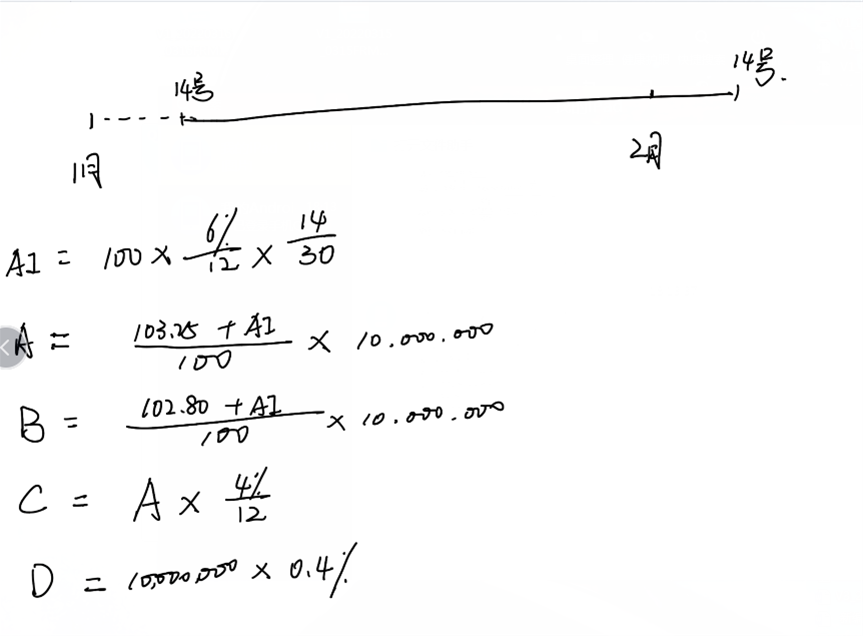 14号
14号.
11月
2月
AI = 100 × 6%/12 × 14/30
A = (103.25 + AI)/100 × 10.000.000
B = (102.80 + AI)/100 × 10.000.000
C = A × 4%/12
D = 10,000,000 × 0.4%